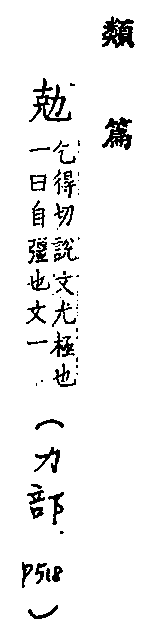 類篇
勀
乞得切說文尤極也
一曰自彊也文一
（力部.
P518）